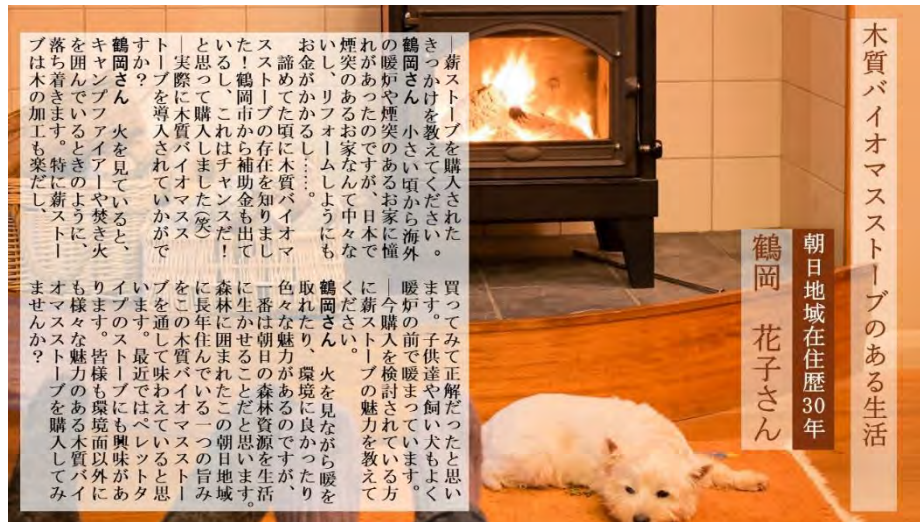 木質バイオマスストーブのある生活
朝日地域在住歴30年
鶴岡　花子さん
―薪ストーブを購入された
きっかけを教えてください。
鶴岡さん　小さい頃から海外
の暖炉や煙突のあるお家に憧
れがあったのですが、日本で
煙突のあるお家なんて中々な
いし、リフォームしようにも
お金がかかるし……。
　諦めてた頃に木質バイオマ
スストーブの存在を知りまし
た！鶴岡市から補助金も出て
いるし、これはチャンスだ！
と思って購入しました(笑)
―実際に木質バイオマスス
トーブを導入されていかがで
すか？
鶴岡さん　火を見ていると、
キャンプファイアーや焚き火
を囲んでいるときのように、
落ち着きます。特に薪ストー
ブは木の加工も楽だし、
買ってみて正解だったと思い
ます。子供達や飼い犬もよく
暖炉の前で暖まっています。
―今購入を検討されている方
に薪ストーブの魅力を教えて
ください。
鶴岡さん　火を見ながら暖を
取れたり、環境に良かったり
色々な魅力があるのですが、
一番は朝日の森林資源を生活
に生かせることだと思います。
森林に囲まれたこの朝日地域
に長年住んでいる一つの旨み
をこの木質バイオマスストー
ブを通して味わえていると思
います。最近ではペレットタ
イプのストーブにも興味があ
ります。皆様も環境面以外に
も様々な魅力のある木質バイ
オマスストーブを購入してみ
ませんか？